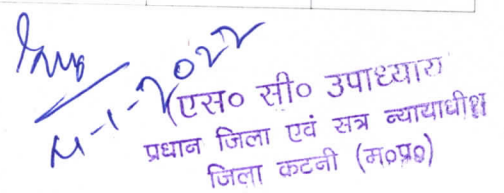 (एस० सी० उपाध्याय)
प्रधान जिला एवं सत्र न्यायाधीश
जिला कटनी (म०प्र०)